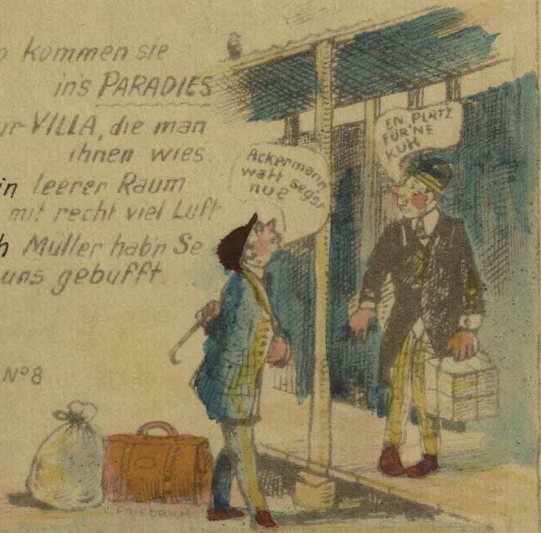 kommen sie
in's PARADIES
VILLA, die man
ihnen wies.
in leerer Raum
mit recht viel Luft
Müller hab'n Se
uns gebufft.
Ackermann
watt segst
nu?
EN PLATZ
FÜR'NE
KUH
Nº8
C. FRIEDRICH